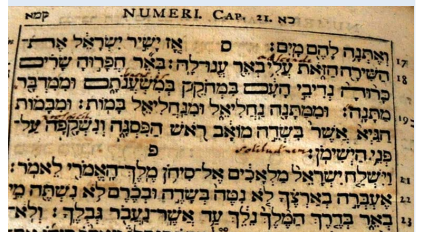 קמא NUMERI. CAP. 21. כא
וְאֶתְּנָה לָהֶם מָיִם: ס אָז יָשִׁיר יִשְׂרָאֵל אֶת־ 17
הַשִּׁירָה הַזֹּאת עֲלִי בְאֵר עֱנוּ־לָהּ: בְּאֵר חֲפָרוּהָ שָׂרִים 18
כָּרוּהָ נְדִיבֵי הָעָם בִּמְחֹקֵק בְּמִשְׁעֲנֹתָם וּמִמִּדְבָּר
מַתָּנָה: וּמִמַּתָּנָה נַחֲלִיאֵל וּמִנַּחֲלִיאֵל בָּמוֹת: וּמִבָּמוֹת 19
הַגַּיְא אֲשֶׁר בִּשְׂדֵה מוֹאָב רֹאשׁ הַפִּסְגָּה וְנִשְׁקָפָה עַל־
פְּנֵי הַיְשִׁימֹן: פ
וַיִּשְׁלַח יִשְׂרָאֵל מַלְאָכִים אֶל־סִיחֹן מֶלֶךְ הָאֱמֹרִי לֵאמֹר: 21
אֶעְבְּרָה בְאַרְצֶךָ לֹא נִטֶּה בְּשָׂדֶה וּבְכֶרֶם לֹא נִשְׁתֶּה מֵי 22
בְאֵר בְּדֶרֶךְ הַמֶּלֶךְ נֵלֵךְ עַד אֲשֶׁר נַעֲבֹר גְּבֻלֶךָ: וְלֹא־ 23